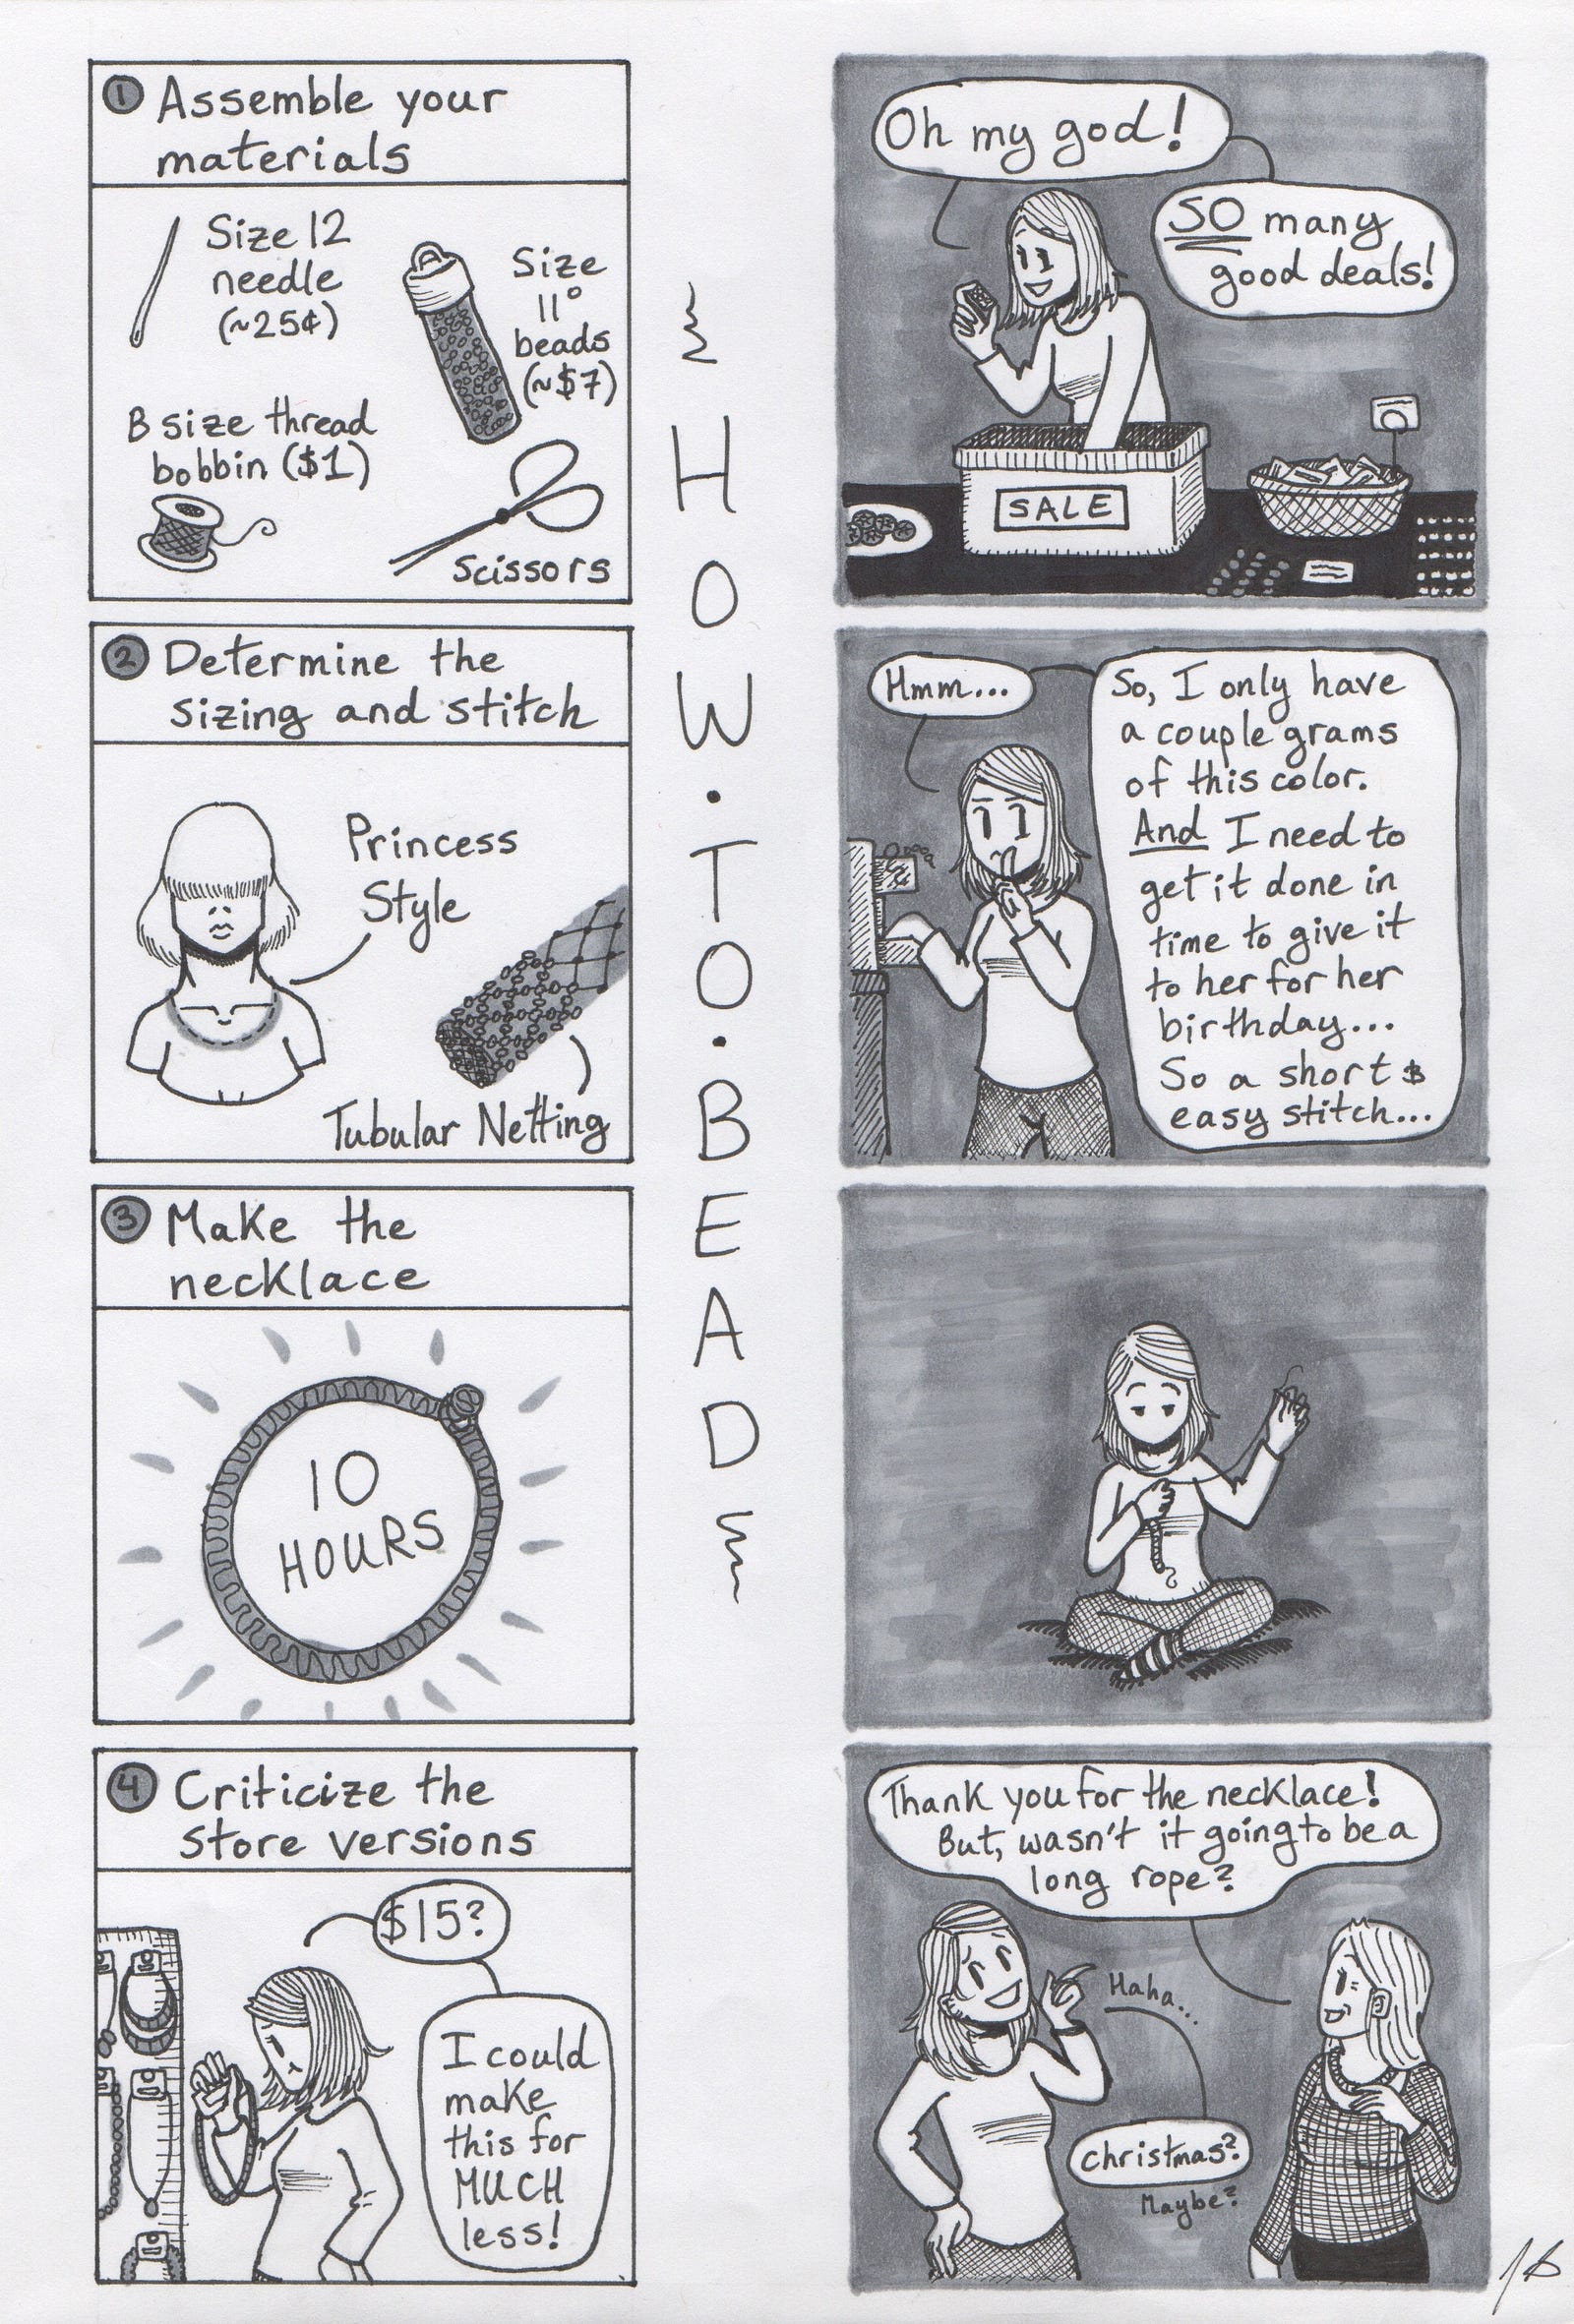 1 Assemble your
materials
Size 12
needle
(~25¢)
Size
11°
beads
(~$7)
B size thread
bobbin ($1)
Scissors
Oh my god!
SO many
good deals!
SALE
HOW·TO·BEAD
2 Determine the
sizing and stitch
Princess
Style
Tubular Netting
Hmm...
So, I only have
a couple grams
of this color.
And I need to
get it done in
time to give it
to her for her
birthday...
So a short &
easy stitch...
3 Make the
necklace
10
HOURS
4 Criticize the
store versions
$15?
I could
make
this for
MUCH
less!
Thank you for the necklace!
But, wasn't it going to be a
long rope?
Haha...
Christmas?
Maybe?